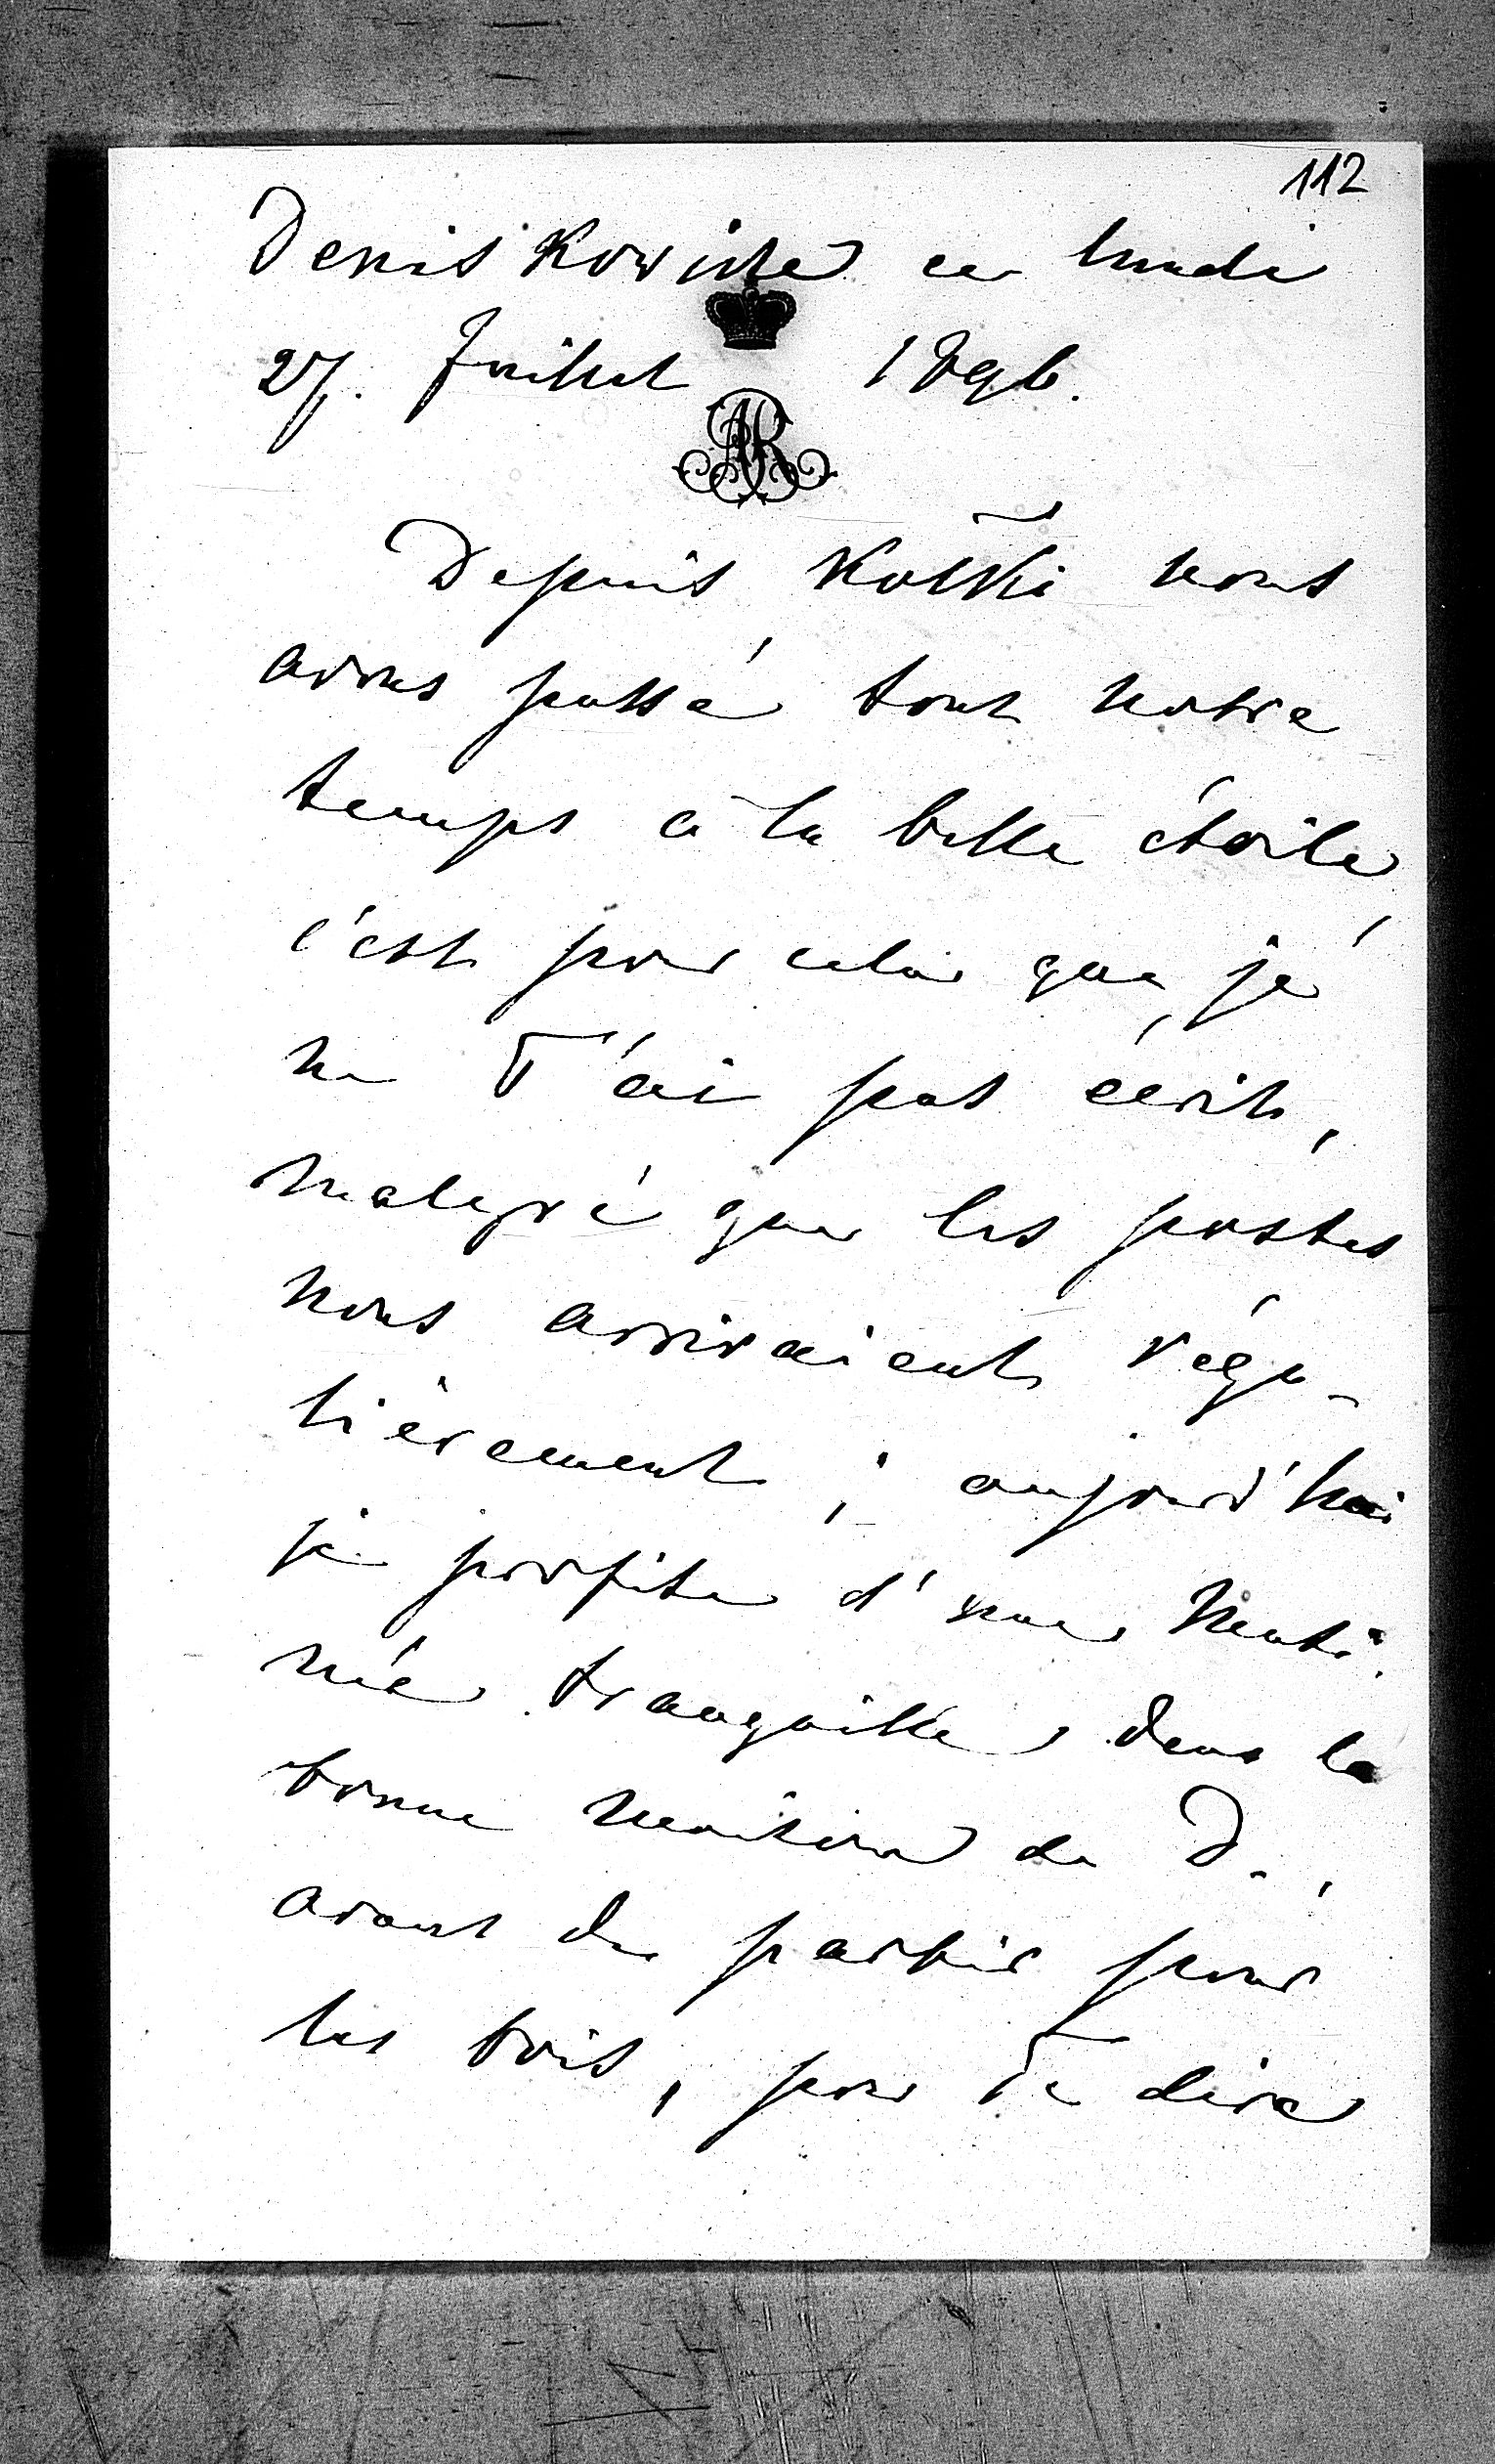 112
Deniskowicze ce lundi
27. Juillet 1896.
AR
Depuis Kołki nous
avons passé tout notre
temps à la belle étoile,
c'est pour cela que je
ne T'ai pas écrit,
malgré que les postes
nous arrivaient régu-
lièrement ; aujourd'hui
je profite d'une mati-
née tranquille dans la
bonne maison de D.,
avant de partir pour
les bois, pour Te dire